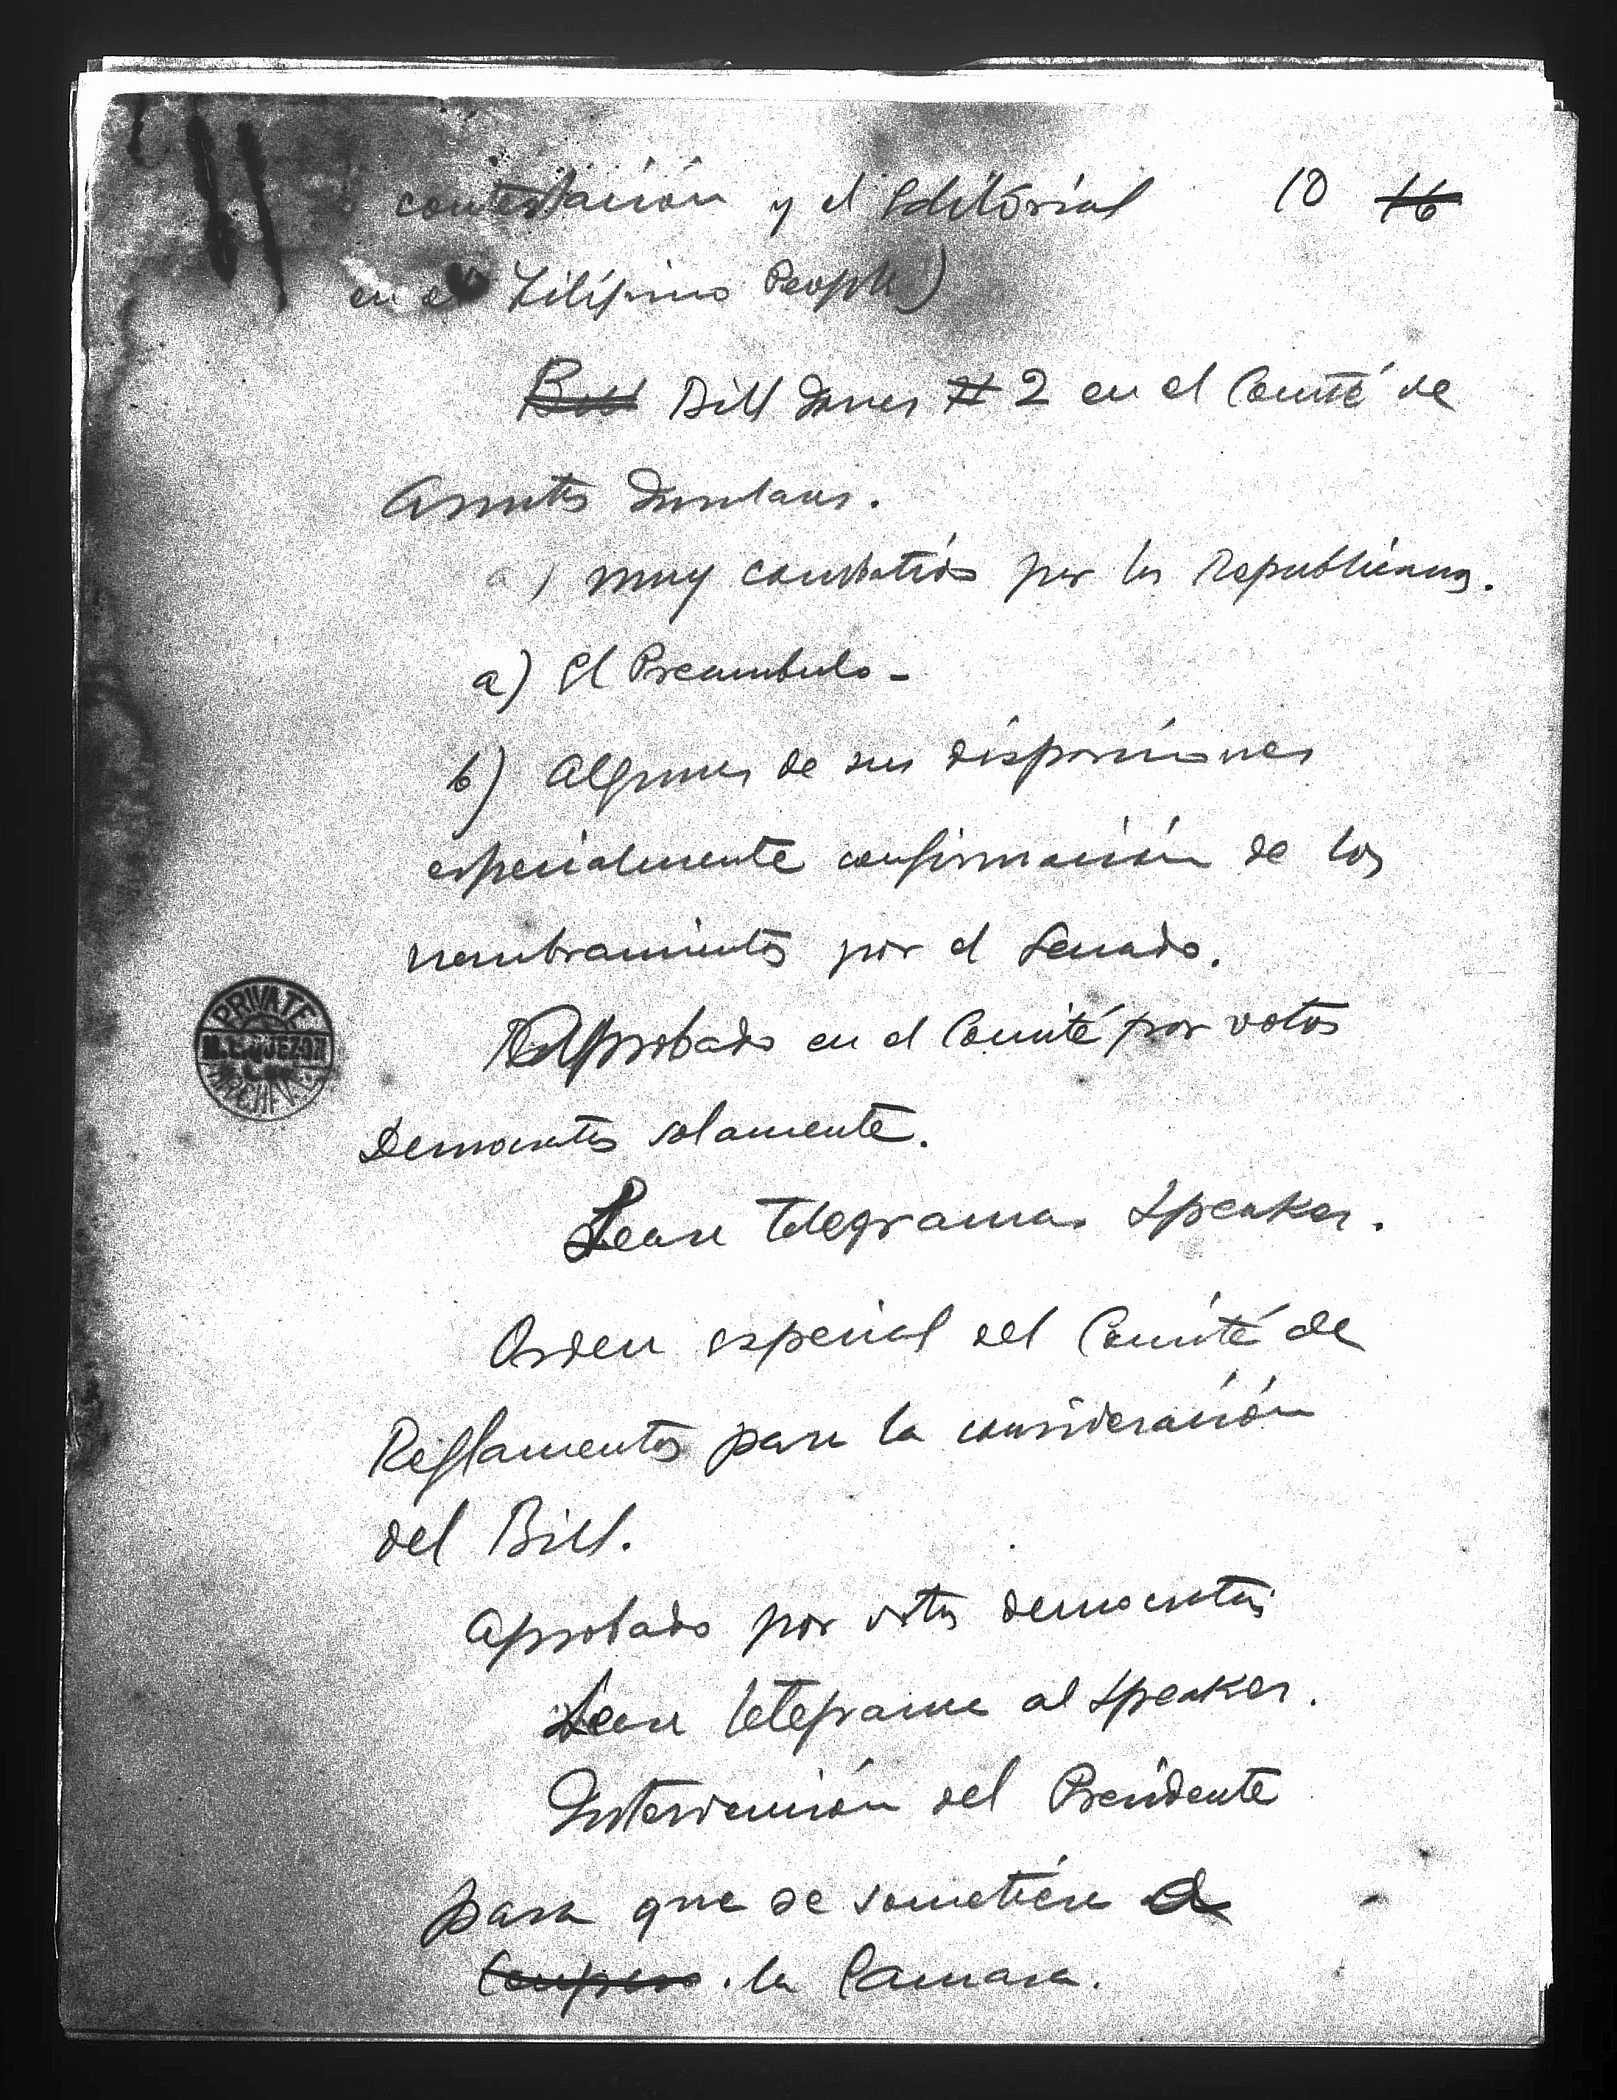 contestación y el Editorial 10 16
en el Filipino People)
Bill Bill Jones # 2 en el Comité de
Asuntos Insulares.
a) muy combatido por los Republicanos.
a) El Preambulo -
b) Algunas de sus disposiciones
especialmente confirmación de los
nombramientos por el Senado.
Aprobado en el Comité por votos
Democratas solamente.
Lease telegrama Speaker.
Orden especial del Comité de
Reglamentos para la consideración
del Bill.
Aprobado por votos democratas
Lease telegrama al Speaker.
Intervención del Presidente
para que se sometiera a
Congreso la Camara.
PRIVATE
M. L. QUEZON
ARCHIVES